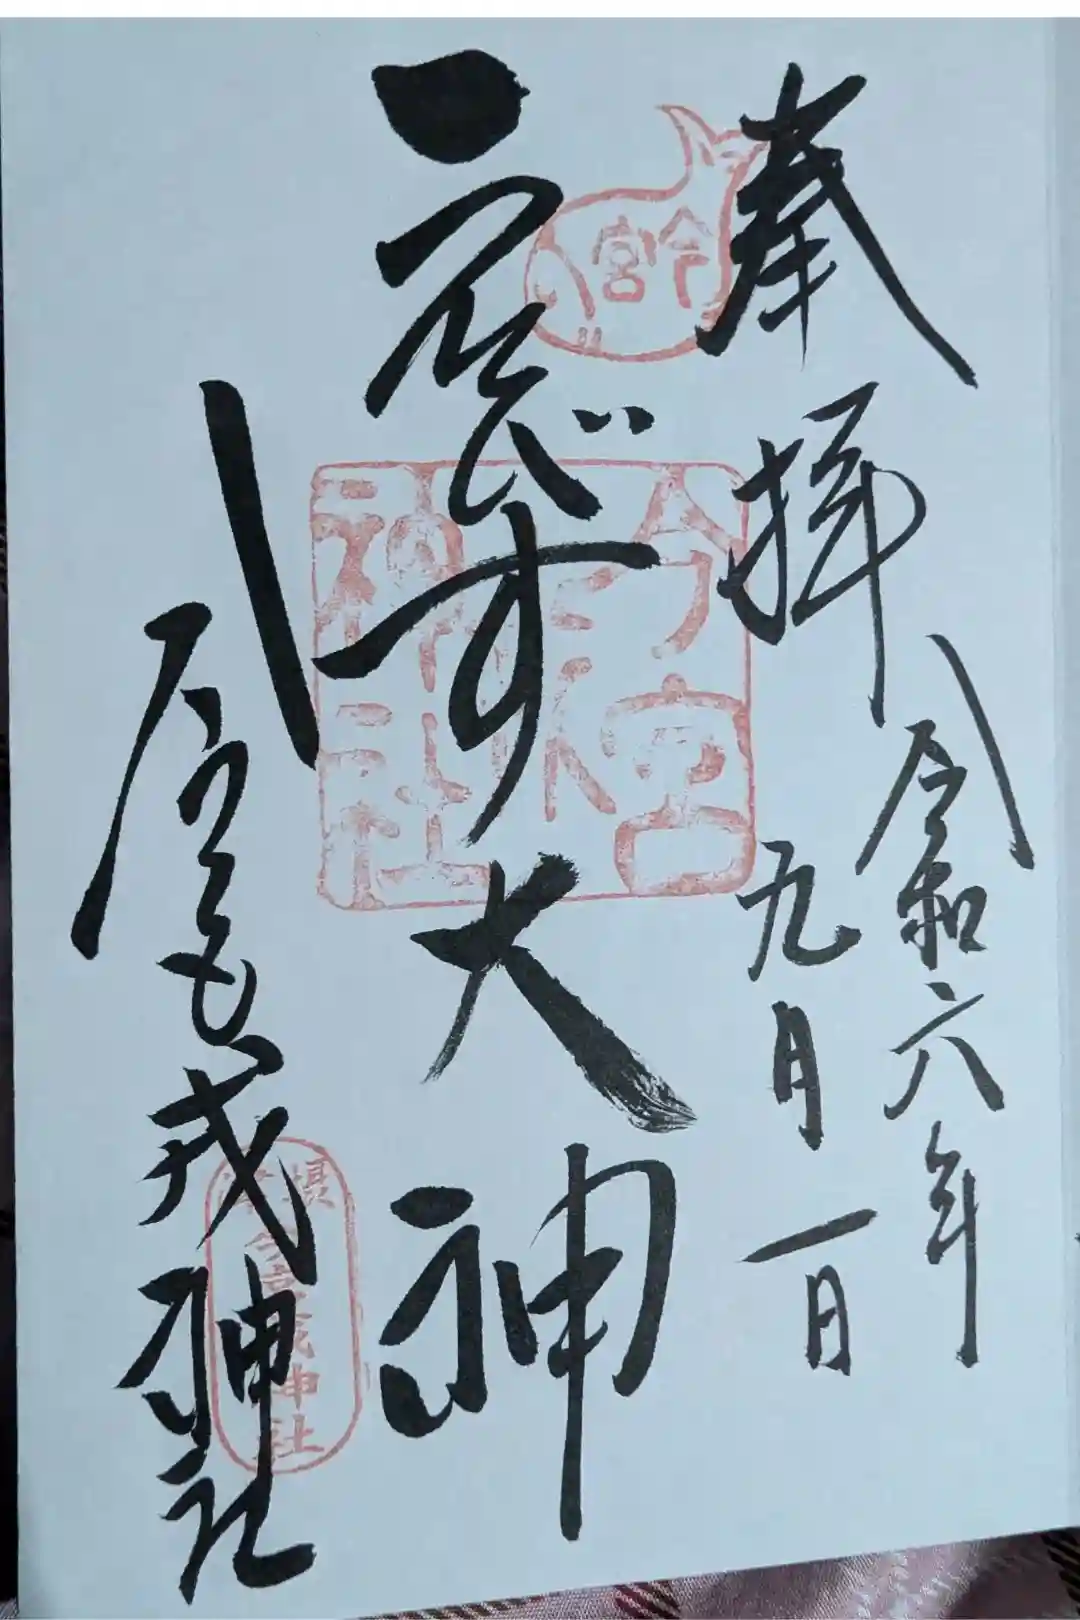 奉拝
令和六年
九月一日
ゑびす大神
今宮戎神社
今宮
今宮
神社
摂津
今宮戎神社